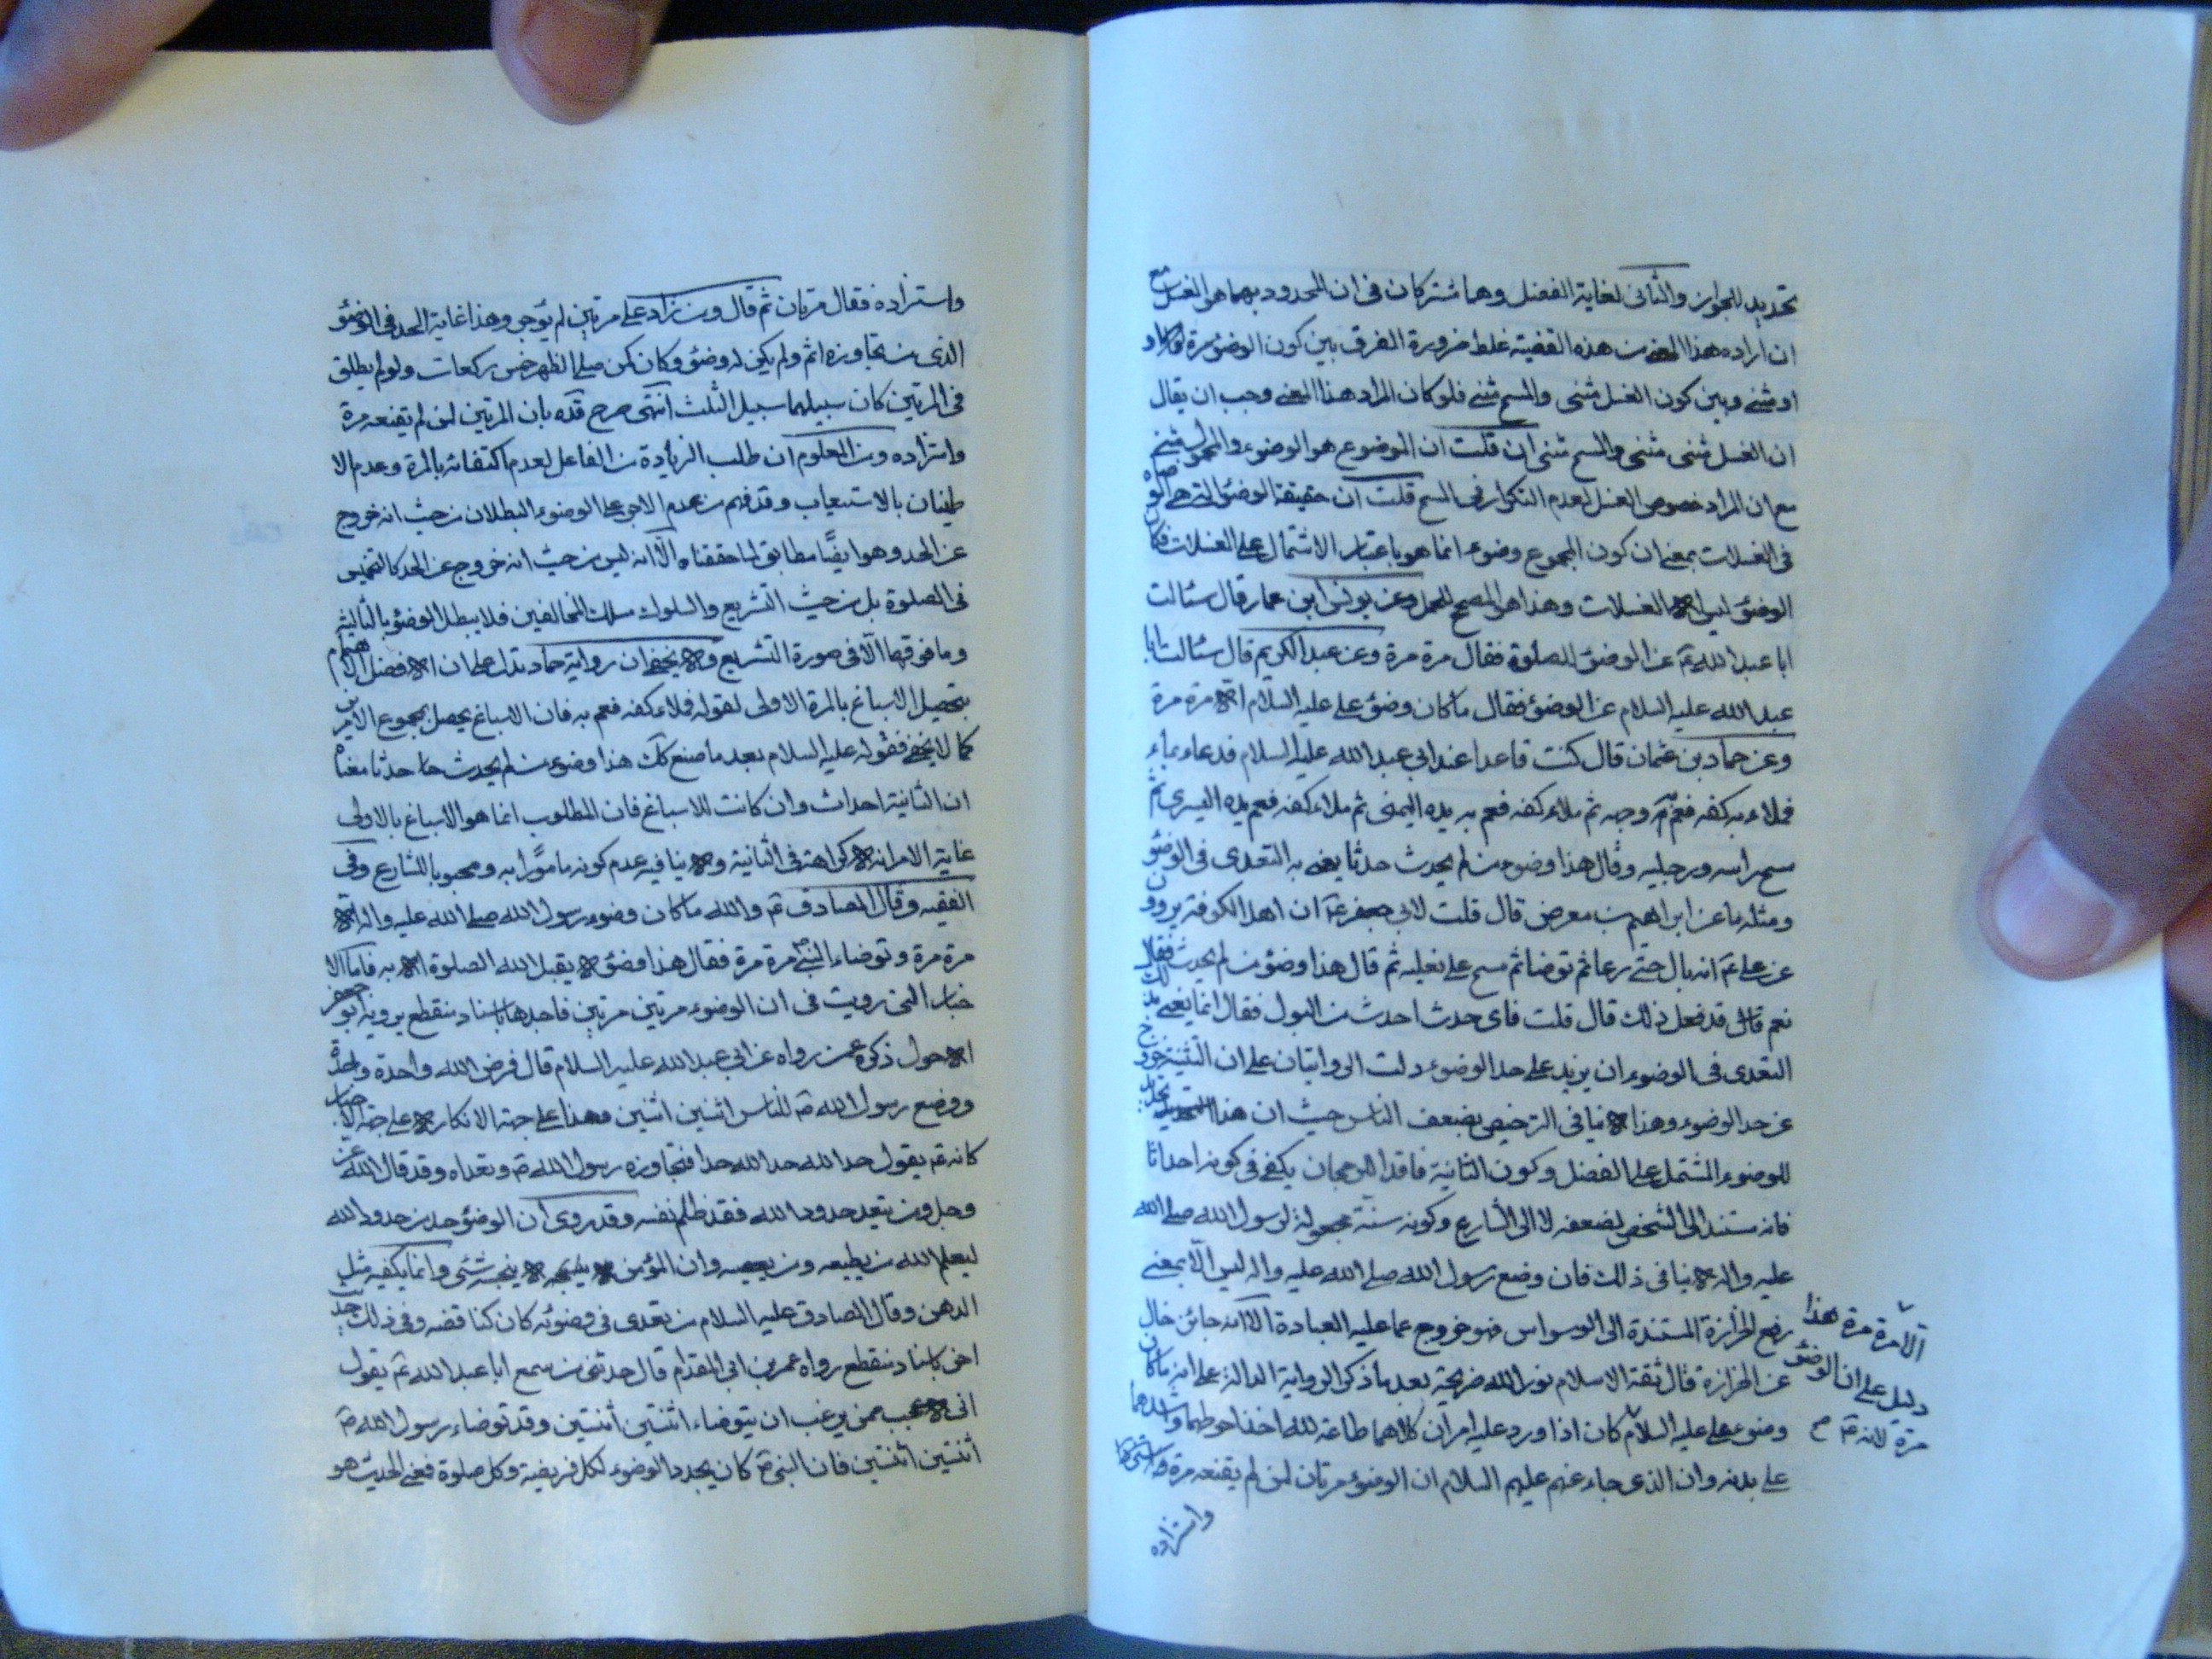 تحديد للجواز والثانى لغاية الفضل وهما مشتركان فى ان المحدود بهما هو الغسل مع
ان ارادة هذا المعنى من هذه القضية غلط ضرورة الفرق بين كون الوضوء مرة
او مثنى وبين كون الغسل مثنى والمسح مثنى فلو كان المراد هذا المعنى وجب ان يقال
ان الغسل مثنى مثنى والمسح مثنى ان قلت ان الموضوع هو الوضوء والمحمول مثنى
مع ان المراد خصوص الغسل لعدم التكرار فى المسح قلت ان حقيقة الوضوء التى هى
فى الغسلات بمعنى ان كون المجموع وضوء انما هو باعتبار الاشتمال على الغسلات فكان
الوضوء ليس الا الغسلات وهذا هو المصحح للحمل وعن يونس ابن عمار قال سئالت
ابا عبد الله ع عن الوضوء للصلوة فقال مرة مرة وعن عبد الكريم قال سئالت ابا
عبد الله عليه السلام عن الوضوء فقال ما كان وضوء على عليه السلام الا مرة مرة
وعن حماد بن عثمان قال كنت قاعدا عند ابى عبد الله عليه السلام فدعاء بماء
فملاء به كفه فعم به وجهه ثم ملاء كفه فعم به يده اليمنى ثم ملاء كفه فعم يده اليسرى ثم
مسح راسه ورجليه وقال هذا وضوء من لم يحدث حدثا يعنى به التعدى فى الوضوء
ومثله ما عن ابراهيم بن معرض قال قلت لابى جعفر ع ان اهل الكوفة يروون
عن على ع انه بال حتى رغا ثم توضا ثم مسح على نعليه ثم قال هذا وضوء من لم يحدث فقال
نعم قال قد فعل ذلك قال قلت فاى حدث احدث من البول فقال انما يعنى بذلك
التعدى فى الوضوء ان يزيد على حد الوضوء دلت الروايتان على ان التثنية خروج
عن حد الوضوء وهذا لا ينافى الترخيص بضعف الناس حيث ان هذا تحديد
للوضوء المشتمل على الفضل وكون الثانية فاقدا للرجحان يكفى فى كونه احداثا
فانه مستند الى الشخص لضعفه لا الى الشارع وكونه سنة مجعولة لرسول الله صلى الله
عليه واله لا ينافى ذلك فان وضع رسول الله صلى الله عليه واله ليس الا بمعنى
رفع الحزازة المستندة الى الوسواس فهو خروج عما عليه العبادة الا انه جائز خال
عن الحزازة قال ثقة الاسلام نور الله ضريحه بعد ما ذكر الرواية الدالة على انه ما كان
وضوء على عليه السلام كان اذا ورد عليه امران كلاهما طاعة لله اخذ احوطهما واشدهما
على بدنه وان الذى جاء عنهم عليهم السلام ان الوضوء مرتان لمن لم يقنعه مرة
واستزاده
الا مرة مرة هذا
دليل على ان الوضوء
مرة لانه ع صح
واستزاده فقال مرتان ثم قال ومن زاد على مرتين لم يؤجر وهذا غاية الحد فى الوضوء
الذى من تجاوزه اثم ولم يكن له وضوء وكان كمن صلى الظهر خمس ركعات ولو لم يطلق
فى المرتين كان سبيلهما سبيل الثلث انتهى صرح قده بان المرتين لمن لم يقنعه مرة
واستزاده ومن المعلوم ان طلب الزيادة من الفاعل لعدم اكتفائه بالمرة وعدم الا
طمينان بالاستيعاب وقد فهم من عدم الاجر على الوضوء البطلان من حيث انه خروج
عن الحد وهو ايضًا مطابق لما حققناه الا انه ليس من حيث انه خروج عن الحد كالتخميس
فى الصلوة بل من حيث التشريع والسلوك مسلك المخالفين فلا يبطل الوضوء بالثالثة
وما فوقها الا فى صورة التشريع ولا يخفى ان رواية حماد تدل على ان الافضل الاهتمام
بتحصيل الاسباغ بالمرة الاولى لقوله فملاء كفه فعم به فان الاسباغ يحصل بمجموع الامرين
كما لا يخفى فقوله عليه السلام بعد ما صنع كك هذا وضوء من لم يحدث حدثا معناه
ان الثانية احداث وان كانت للاسباغ فان المطلوب انما هو الاسباغ بالاولى
غاية الامر انه لا كراهة فى الثانية ولا ينافيه عدم كونه مامورًا به ومحبوبا للشارع وفى
الفقيه وقال الصادق ع والله ما كان وضوء رسول الله صلى الله عليه واله الا
مرة مرة وتوضاء النبى ص مرة مرة فقال هذا وضوء لا يقبل الله الصلوة الا به فاما الا
خبار التى رويت فى ان الوضوء مرتين مرتين فاحدها باسناد منقطع يرويه ابو جعفر
الاحول ذكره عمن رواه عن ابى عبد الله عليه السلام قال فرض الله واحدة واحدة
ووضع رسول الله ص للناس اثنين اثنين وهذا على جهة الانكار لا على جهة الاخبار
كانه ع يقول حد الله حد الله حدا فتجاوزه رسول الله ص وتعداه وقد قال الله عز
وجل ومن يتعد حدود الله فقد ظلم نفسه وقد روى ان الوضوء حد من حدود الله
ليعلم الله من يطيعه ومن يعصيه وان المؤمن لا ينجسه شئى وانما يكفيه مثل
الدهن وقال الصادق عليه السلام من تعدى فى وضوئه كان كناقضه وفى ذلك حديث
اخر باسناد منقطع رواه عمر بن ابى المقدام قال حدثنى من سمع ابا عبد الله ع يقول
انى لاعجب ممن يرغب ان يتوضاء اثنتين اثنتين وقد توضاء رسول الله ص
اثنتين اثنتين فان النبى ص كان يجدد الوضوء لكل فريضة وكل صلوة فمعنى الحديث هو